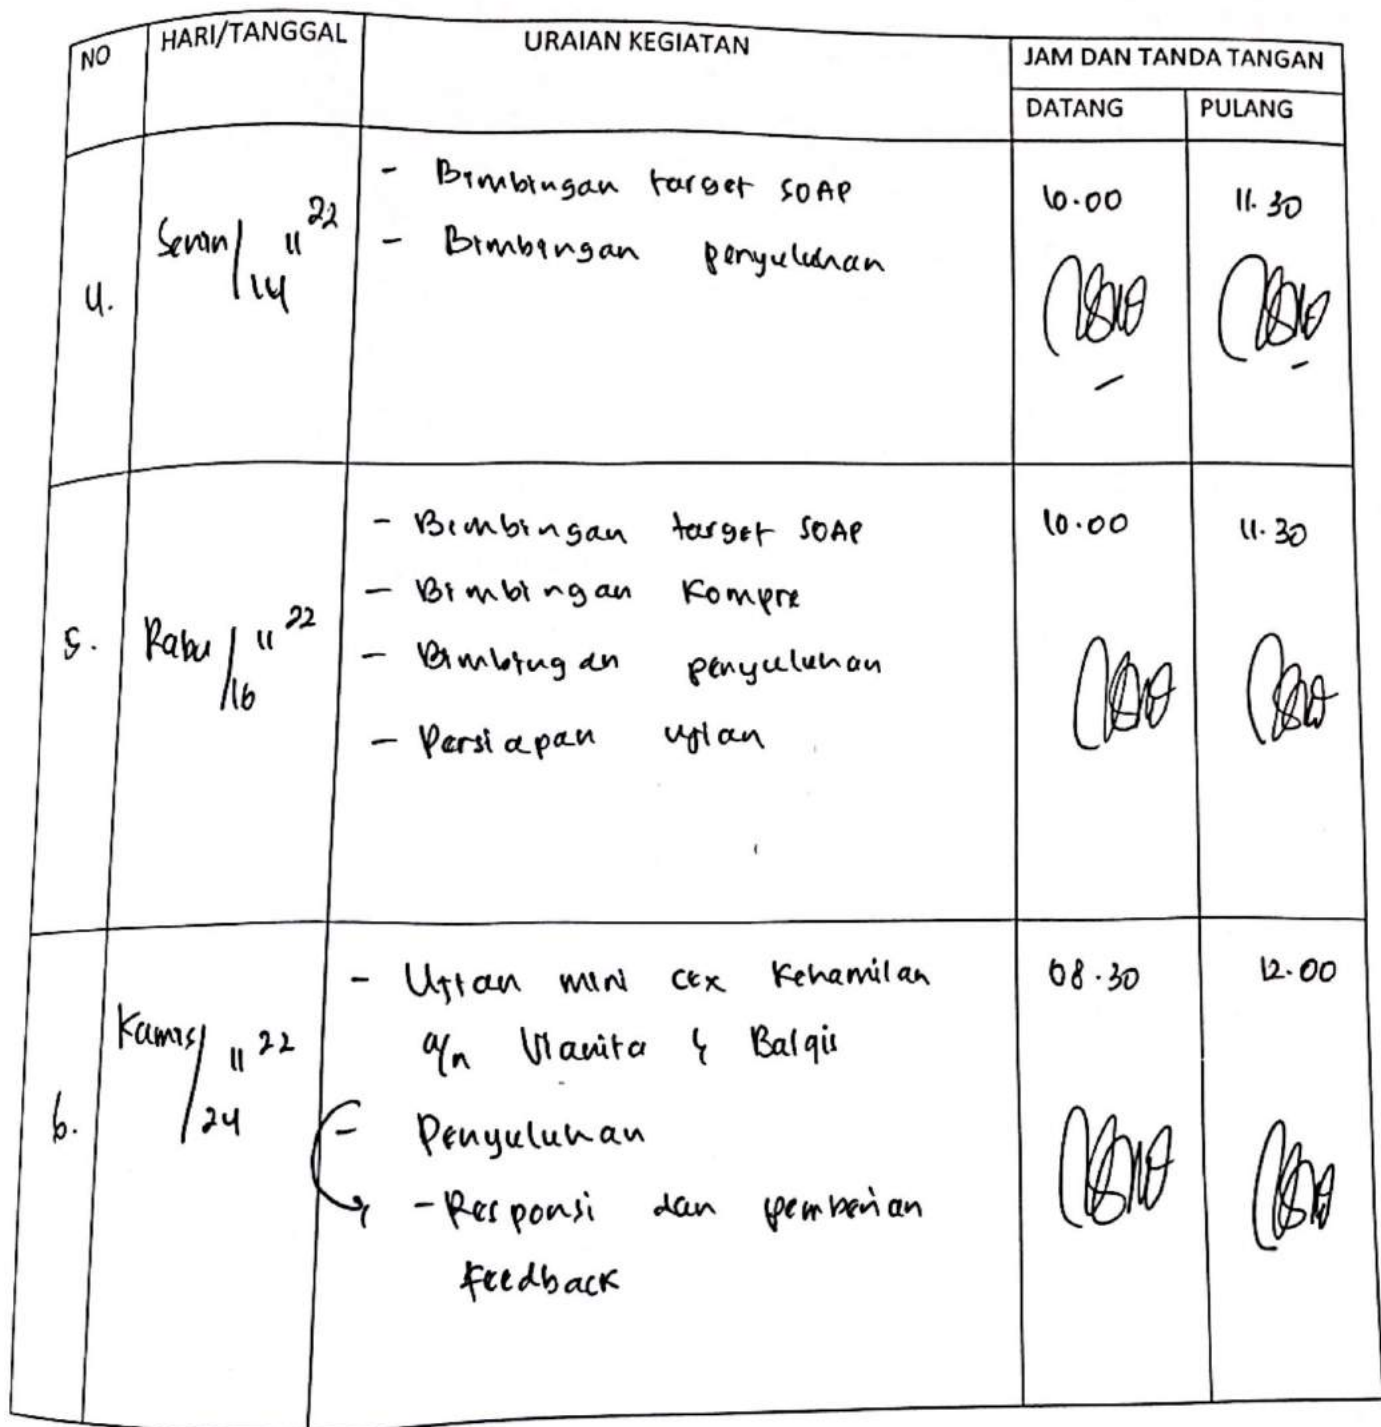 NO HARI/TANGGAL URAIAN KEGIATAN JAM DAN TANDA TANGAN
DATANG PULANG
4. Senin/14 11 22
- Bimbingan target SOAP
- Bimbingan penyuluhan
10.00 11.30
5. Rabu/16 11 22
- Bimbingan target SOAP
- Bimbingan Kompre
- Bimbingan penyuluhan
- Persiapan ujian
10.00 11.30
6. Kamis/24 11 22
- Ujian mini cex Kehamilan
a/n & Balqis
- Penyuluhan
- Responsi dan pemberian
Feedback
08.30 12.00